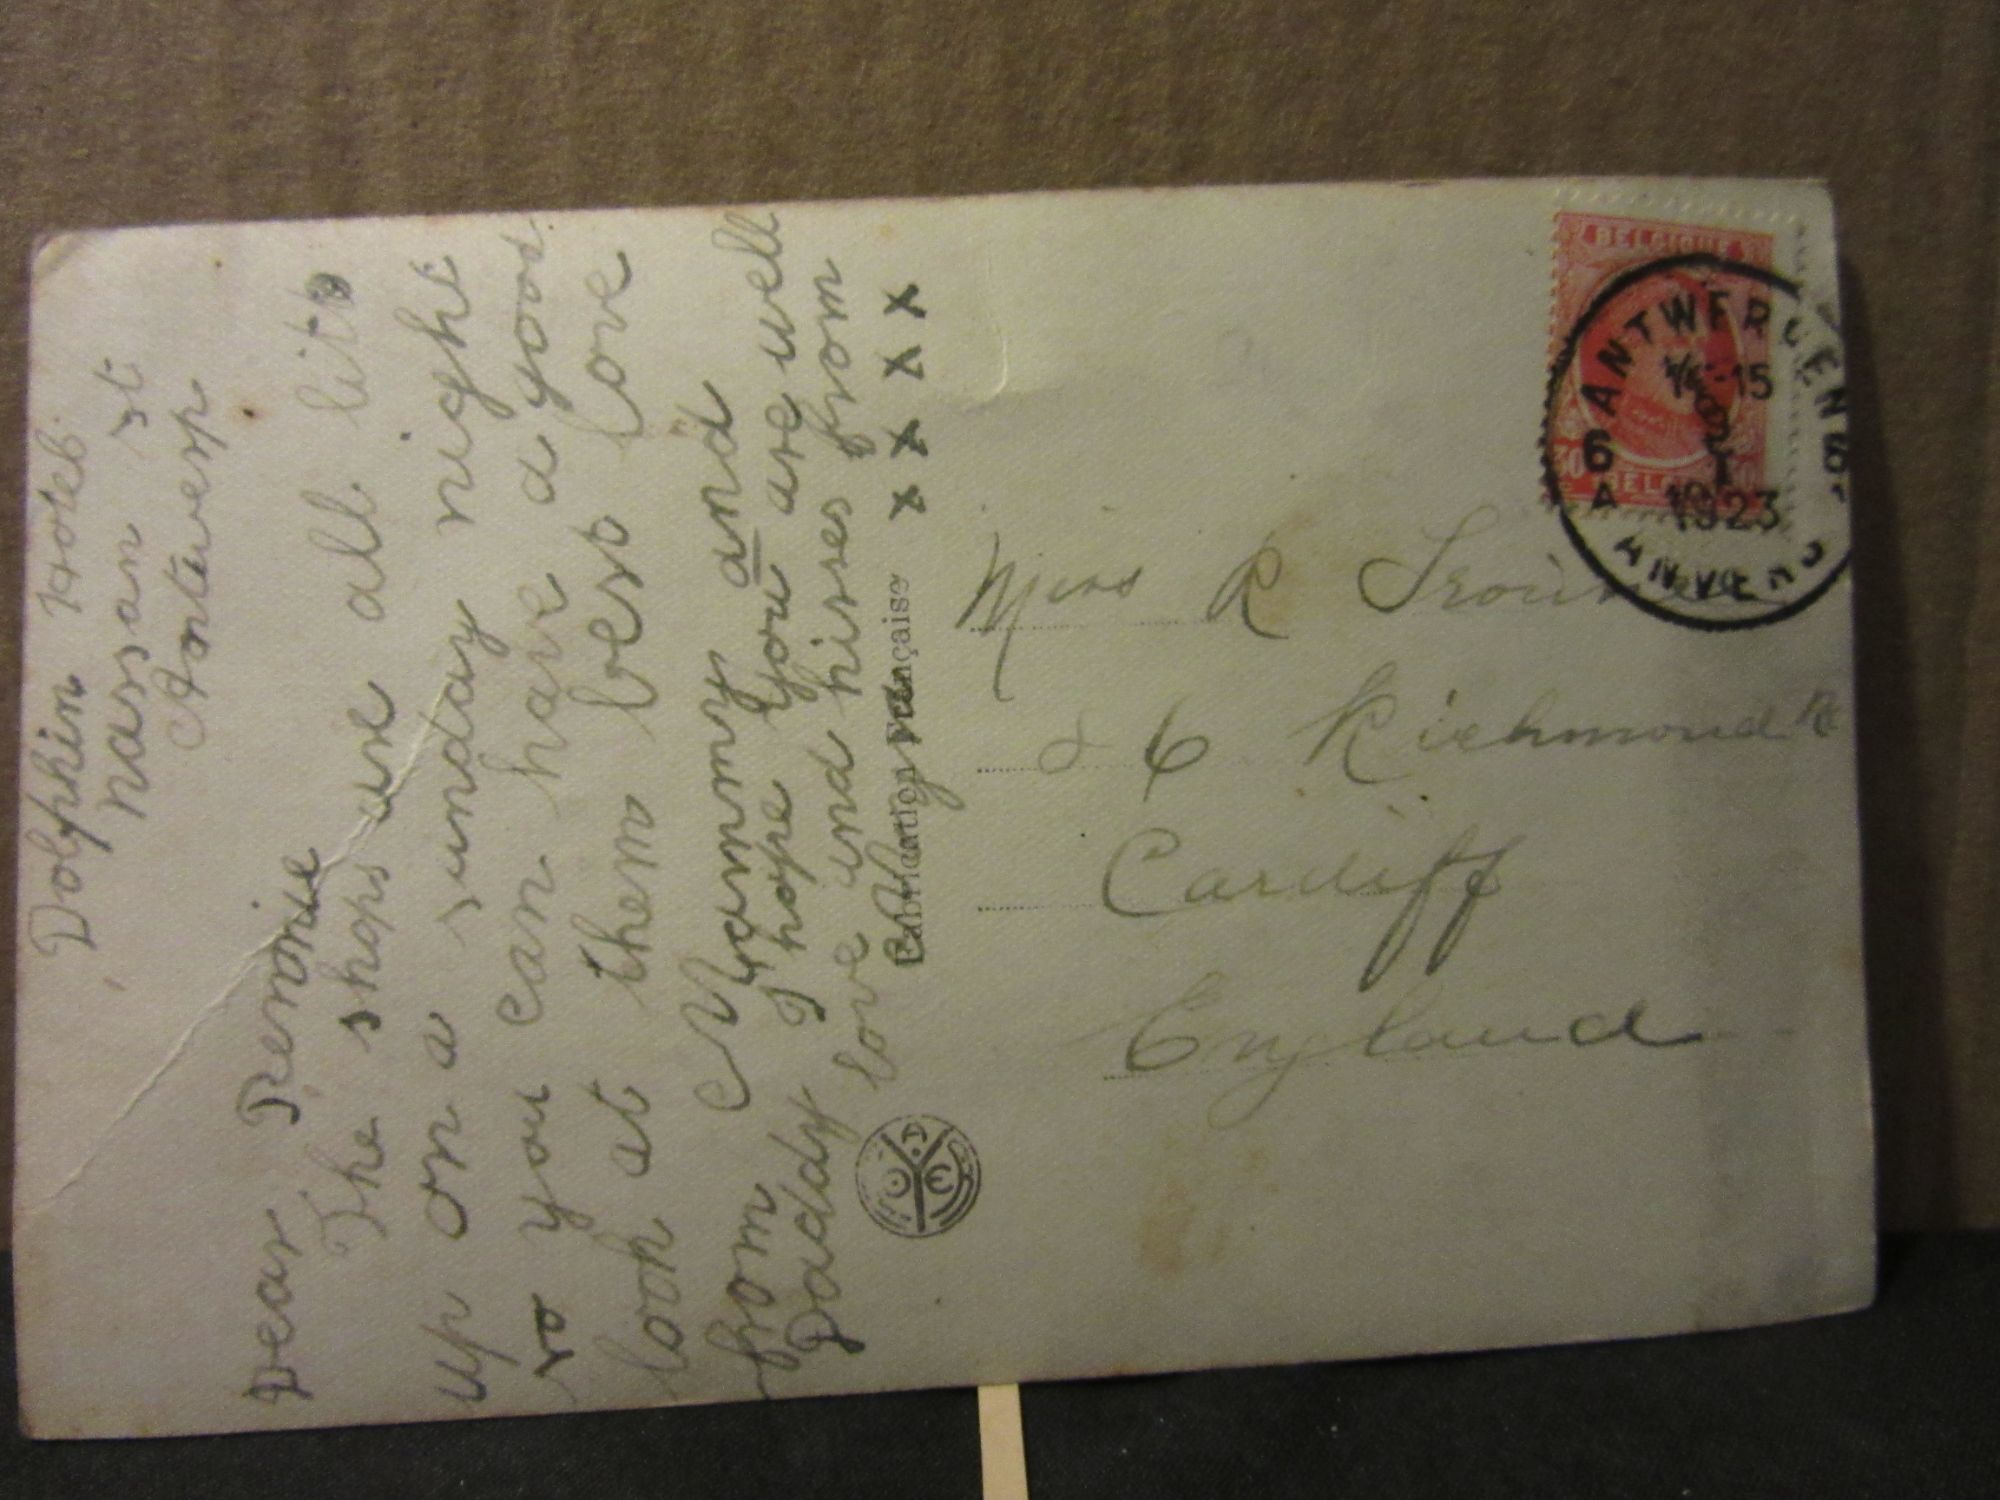 Dolphin Hotel
Nassan st
Antwerp
Dear Renonie
The shops are all lit
up on a sunday night
so you can have a good
look at them best love
from Mammy and
Daddy I hope you are well
love and kisses from
x x x x
Fabrication Française
Miss R
26 Richmond Rd
Cardiff
England
BELGIQUE
30 BELG
ANTWERPEN
6 A
-15
1923
ANVERS